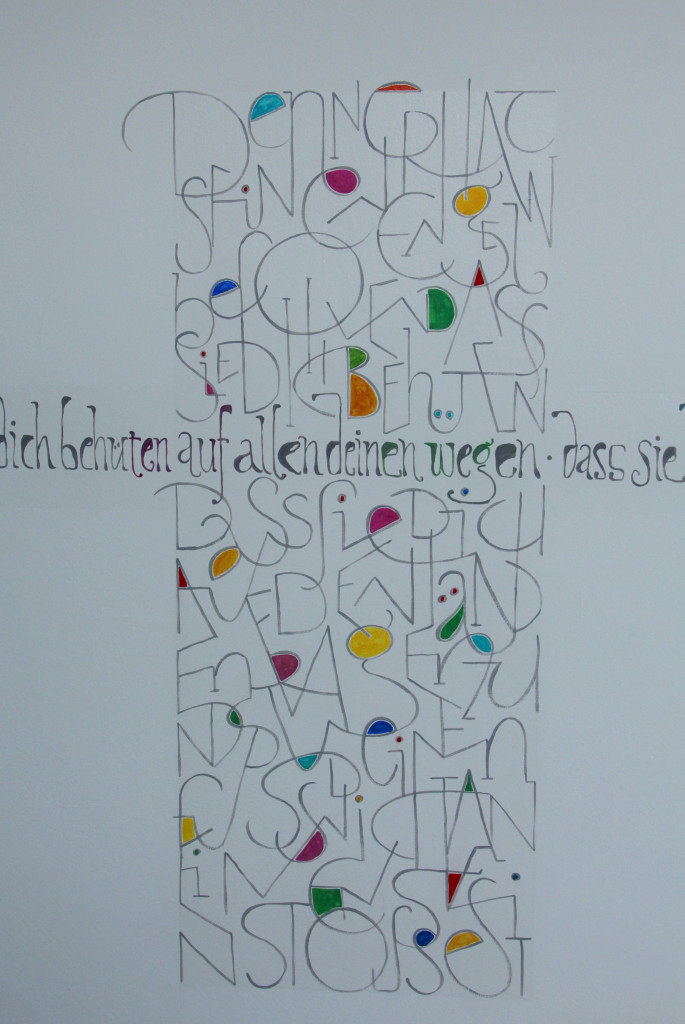 DENN ER HAT
SEINEN ENGELN
befOHLEN DASS
SiE DICH BEHüTEN
dich behüten auf allen deinen wegen · dass sie
DASS SiE DICH
AUF DEN HäND
EN TRAGEN U
FUSS NiCHT AN
EiNEN STEi
N STOSSEST